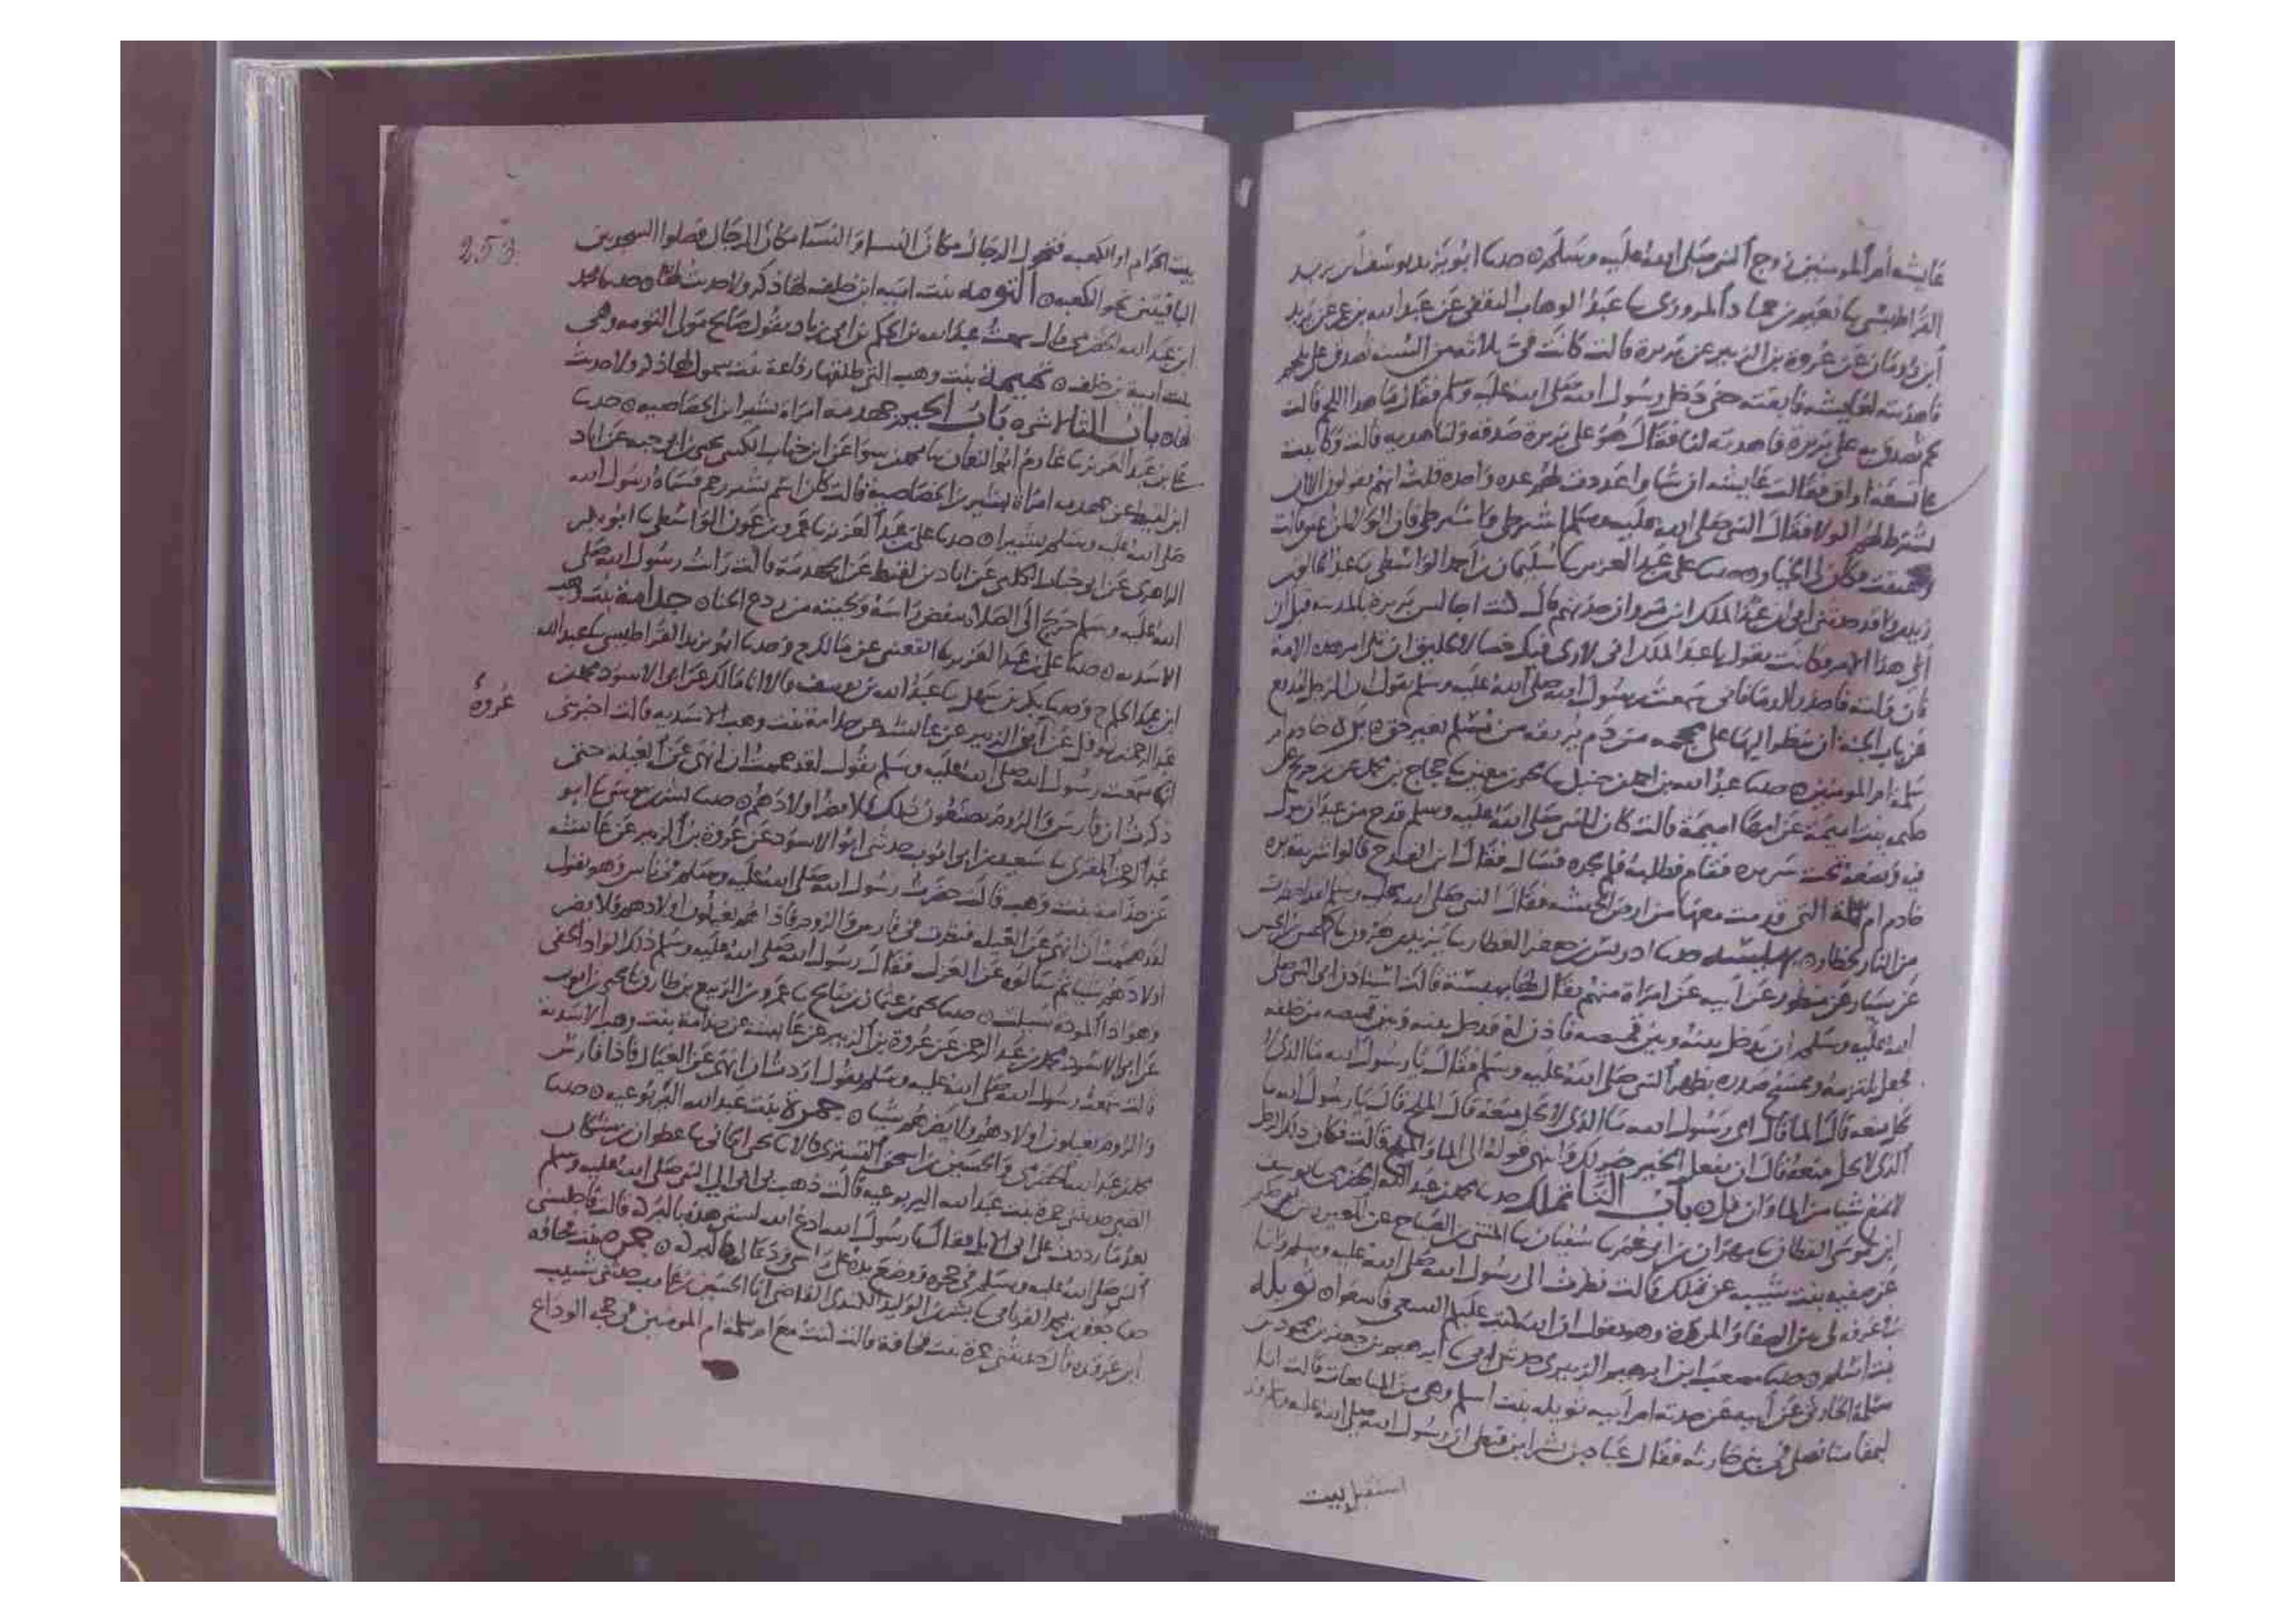 عايشه ام المومنين زوج النبي صلى الله عليه وسلم ٥ حدثنا ابو يزيد يوسف بن يزيد
القراطيسي نا نعيم بن حماد المروزي نا عبد الوهاب الثقفي عن عبيد الله بن عمر عن يزيد
ابن رومان عن عروة بن الزبير عن بريرة قالت كانت في ثلاثة من السنة تصدق علي بلحم
فاهديته لعايشه فابقته حتى دخل رسول الله صلى الله عليه وسلم فقال ما هذا اللحم قالت
لحم تصدق به على بريرة فاهدته لنا فقال هو على بريرة صدقه ولنا هديه قالت وكاتبت
على تسعة اواق فقالت عايشه ان شاوا عددت لهم عده واحده قلت انهم يقولون الا ان
تشترط لهم الولا فقال النبي صلى الله عليه وسلم اشترطي واشترطي فان الولا لمن اعتق قالت
واعتقت فكان لي الخيار ٥ حدثنا علي بن عبد العزيز نا سليمان بن احمد الواسطي نا عبد الخالق بن
زيد بن واقد حدثني ابي ان عبد الملك بن مروان حدثهم قال كنت اجالس بريرة بالمدينه قبل ان
الي هذا الامر وكانت تقول يا عبد الملك اني لارى فيك خصالا لخليق ان تلي امر هذه الامة
فان وليت فاحذر الدما فاني سمعت رسول الله صلى الله عليه وسلم يقول ان الرجل ليدفع
عن باب الجنة ان ينظر اليها على محجمه من دم يريقه من مسلم بغير حق ٥ بركه خادم ام
سلمة ام المومنين ٥ حدثنا عبد الله بن احمد بن حنبل نا يحيى بن معين نا حجاج بن محمد عن بن جريج عن
حكيمه بنت اميمة عن امها اميمة قالت كان للنبي صلى الله عليه وسلم قدح من عيدان يبول
فيه ويضعه تحت سريره فقام فطلبه فلم يجده فسال فقال اين القدح قالوا شربته بره
خادم ام سلمة التي قدمت معها من ارض الحبشه فقال النبي صلى الله عليه وسلم لقد احتظرت
من النار بحظار ٥ بهيسه حدثنا ادريس بن جعفر العطار نا يزيد بن هرون نا كهمس بن الحسن
عن سيار بن منظور عن ابيه عن امراة منهم يقال لها بهيسة قالت استاذن ابي النبي صلى
الله عليه وسلم ان يدخل بينه وبين قميصه فاذن له فدخل بينه وبين قميصه من خلفه
فجعل يلتزمه ويمسح صدره بظهر النبي صلى الله عليه وسلم فقال يا رسول الله ما الذي لا
يحل منعه قال الما قال اي رسول الله ما الذي لا يحل منعه قال الملح قال يا رسول الله ما
الذي لا يحل منعه قال ان تفعل الخير خير لك وانتهى قوله الى الما والملح قالت فكان ذلك الرجل
لا يمنع شيا من الما وان قل ٥ باب التا تملك حدثنا محمد بن عبد الله الحضرمي نا يوسف
ابن موسى القطان نا مهران بن ابي عمر نا سفيان نا المثنى بن الصباح عن المغيره بن حكيم
عن صفيه بنت شيبه عن تملك قالت نظرت الى رسول الله صلى الله عليه وسلم وانا
في غرفه لي بين الصفا والمروة وهو يقول ان الله كتب عليكم السعي فاسعوا ٥ تويله
بنت اسلم ٥ حدثنا مصعب بن ابرهيم الزبيري حدثني ابي نا ابرهيم بن جعفر بن محمود بن
سلمة الحارثي عن ابيه عن جدته ام ابيه تويله بنت اسلم وهي من المبايعات قالت انا
لبمقامنا نصلي في بني حارثه فقال عباد بن بشر ابن قيظي ان رسول الله صلى الله عليه وسلم قد
استقبل بيت
253
بيت الحرام او الكعبه فتحول الرجال مكان النسا والنسا مكان الرجال فصلوا السجدتين
الباقيتين نحو الكعبه ٥ التومه بنت اميه ابن خلف لها ذكر ولا حديث لها ٥ حدثنا محمد
ابن عبد الله الحضرمي قال سمعت عبد الله بن الحكم بن ابي زياد يقول صالح مولى التومه وهي
بنت امية بن خلف ٥ تميمه بنت وهب التي طلقها رفاعة بنت سموال لها ذكر ولا حديث
لها ٥ باب الثا لا شره باب الجيم جهدمه امراة بشير ابن الخصاصيه ٥ حدثنا
علي بن عبد العزيز نا عارم ابو النعمان نا محمد بن سوا عن ابن جناب الكلبي يحيى بن ابي حيه عن اياد
ابن لقيط عن جهدمه امراة بشير بن الخصاصية قالت كان اسم بشير زحم فسماه رسول الله
صلى الله عليه وسلم بشيرا ٥ حدثنا علي بن عبد العزيز نا عمرو بن عون الواسطي نا ابو بكر
الداهري عن ابو جناب الكلبي عن اياد بن لقيط عن الجهدمة قالت رايت رسول الله صلى
الله عليه وسلم خرج الى الصلاة ينفض راسه ولحيته من ردع الحنا ٥ جدامة بنت وهب
الاسديه ٥ حدثنا علي بن عبد العزيز نا القعنبي عن مالك ح وحدثنا ابو يزيد القراطيسي نا عبد الله
ابن عبد الحكم ح وحدثنا بكر بن سهل نا عبد الله بن يوسف قالا انا مالك عن ابي الاسود محمد بن
عبد الرحمن بن نوفل عن ابن الزبير عن عائشه عن جدامة بنت وهب الاسديه قالت اخبرتني
عروة
انها سمعت رسول الله صلى الله عليه وسلم يقول لقد هممت ان انهى عن الغيلة حتى
ذكرت ان فارس والروم يصنعون ذلك فلا يضر اولادهم ٥ حدثنا بشر بن موسى نا ابو
عبد الرحمن المقري نا سعيد بن ابي ايوب حدثني ابو الاسود عن عروة بن الزبير عن عائشه
عن جدامة بنت وهب قالت حضرت رسول الله صلى الله عليه وسلم في ناس وهو يقول
لقد هممت ان انهى عن الغيله فنظرت في فارس والروم فاذا هم يغيلون اولادهم فلا يضر
اولادهم شيا ثم سالوه عن العزل فقال رسول الله صلى الله عليه وسلم ذلك الواد الخفي
وهو اذا المودة سيلت ٥ حدثنا يحيى بن عثمان بن صالح نا عمرو بن الربيع بن طارق نا يحيى بن ايوب
عن ابي الاسود محمد بن عبد الرحمن عن عروة بن الزبير عن عايشه عن جدامة بنت وهب الاسدية
قالت سمعت رسول الله صلى الله عليه وسلم يقول اردت ان انهى عن الغيال فاذا فارس
والروم يغيلون اولادهم ولا يضرهم شيا ٥ جمرة بنت عبد الله اليربوعيه ٥ حدثنا
محمد بن عبد الله الحضرمي والحسين بن اسحق التستري قالا نا يحيى الحماني نا عطوان بن مشكان
الضبي حدثتني جمرة بنت عبد الله اليربوعيه قالت ذهب بي ابي الى النبي صلى الله عليه وسلم
بعد ما رددت على ابي الابل فقال يا رسول الله ادع الله لبنتي هذه بالبركة قالت فاجلسني
النبي صلى الله عليه وسلم في حجره ووضع يده على راسي ودعا لي بالبركة ٥ جمرة بنت قحافه
حدثنا جعفر بن محمد الفريابي نا بشر بن الوليد الكندي القاضي انا الحسين بن عازب حدثني شبيب
ابن غرقده قال حدثتني جمرة بنت قحافة قالت كنت مع ام سلمة ام المومنين في حجة الوداع